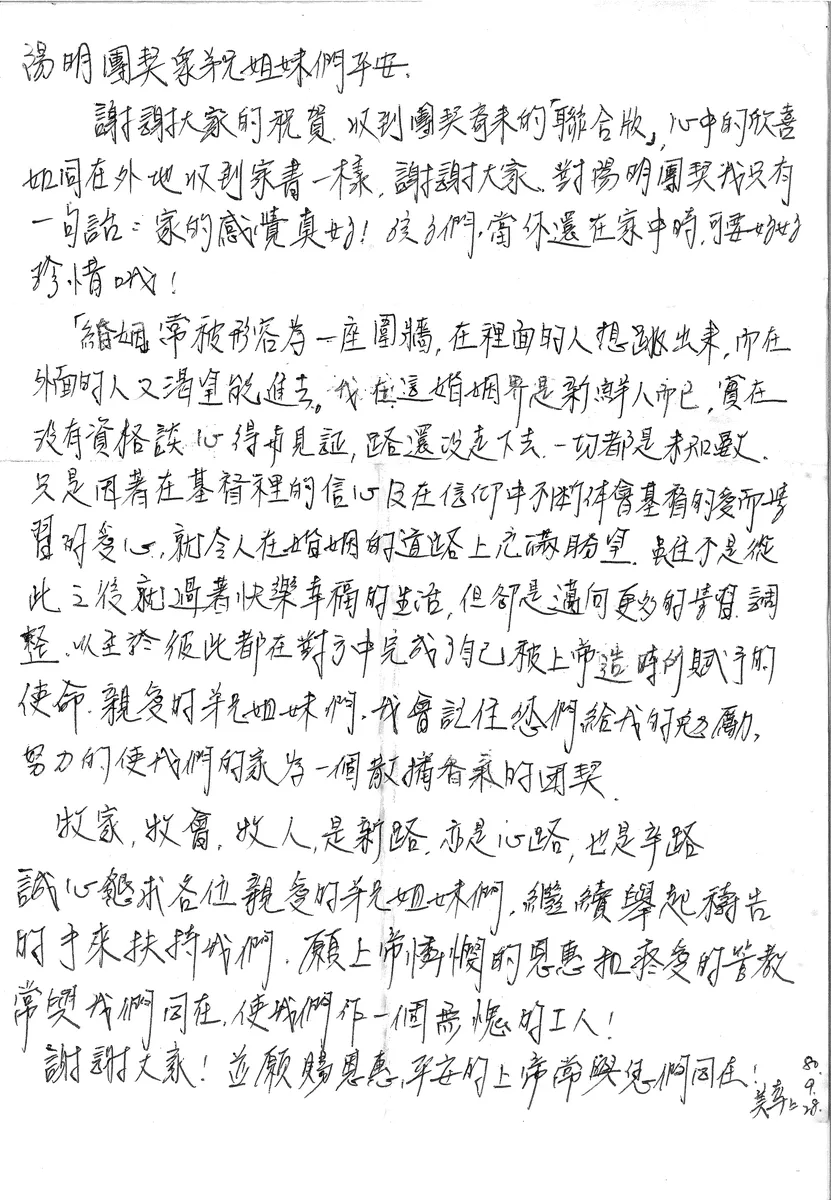 陽明團契眾弟兄姐妹們平安.
謝謝大家的祝賀.收到團契寄來的「聯合版」,心中的欣喜
如同在外地收到家書一樣,謝謝大家.對陽明團契我只有
一句話:家的感覺真好!孩子們,當你還在家中時,可要好好
珍惜哦!
「婚姻」常被形容為一座圍牆,在裡面的人想跳出來,而在
外面的人又渴望能進去。我在這婚姻界是新鮮人而已,實在
沒有資格談心得與見証,路還沒走下去.一切都是未知數.
只是因著在基督裡的信心及在信仰中不斷體會基督的愛而學
習的愛心,就令人在婚姻的道路上充滿盼望.雖然不是從
此之後就過著快樂幸福的生活,但卻是邁向更多的學習.調
整.以至於彼此都在對方中完成了自己被上帝造時所賦予的
使命.親愛的弟兄姐妹們,我會記住您們給我的勉勵,
努力的使我們的家為一個散播香氣的团契.
牧家,牧會,牧人,是新路.亦是心路,也是辛路
誠心懇求各位親愛的弟兄姐妹們,繼續舉起禱告
的手來扶持我們.願上帝憐憫的恩惠和疼愛的管教
常與我們同在,使我們作一個無愧的工人!
謝謝大家!並願賜恩惠,平安的上帝常與您們同在!
80.9.28.